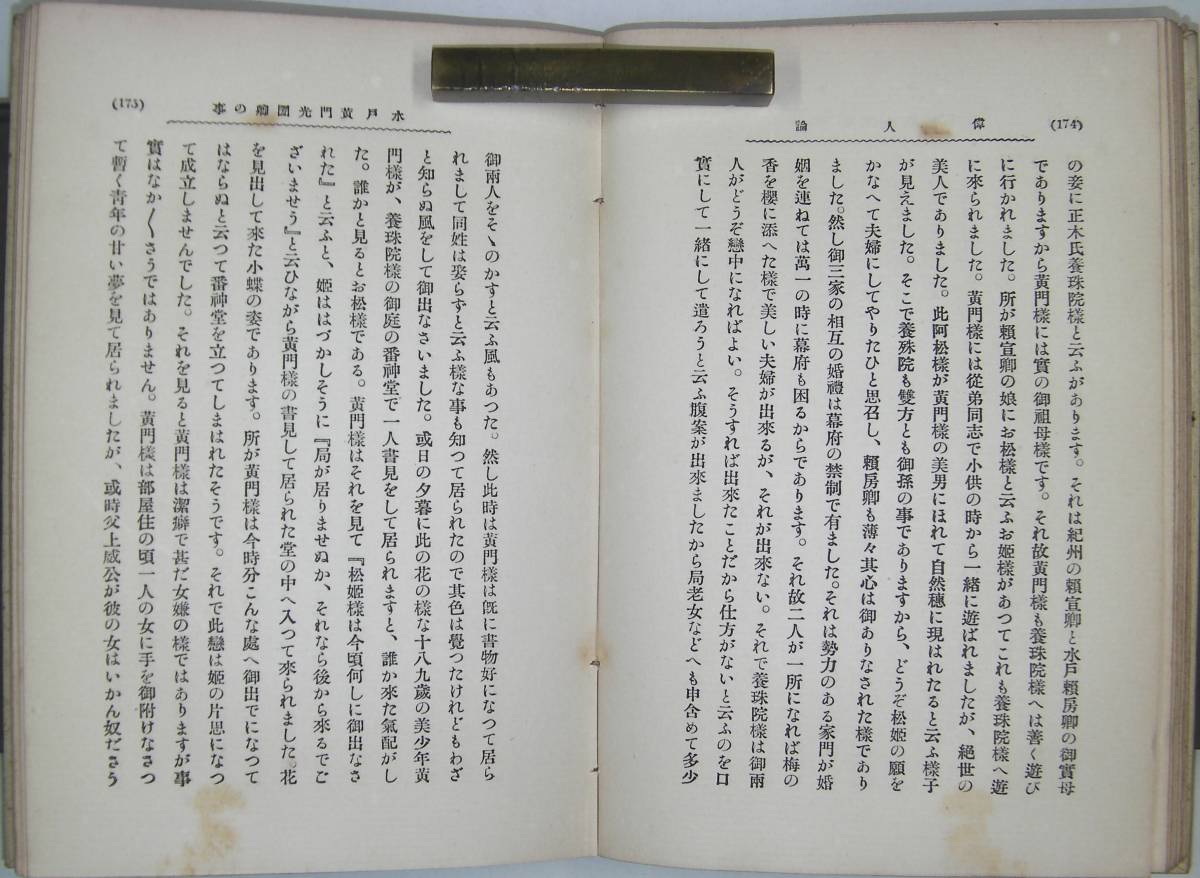 (174)
偉人論
の妾に正木氏養珠院樣と云ふがあります。それは紀州の賴宣卿と水戸賴房卿の御實母
でありますから黃門樣には實の御祖母樣です。それ故黃門樣も養珠院樣へは善く遊び
に行かれました。所が賴宣卿の娘にお松樣と云ふお姬樣があつてこれも養珠院樣へ遊
に來られました。黃門樣には從弟同志で小供の時から一緖に遊ばれましたが、絕世の
美人でありました。此阿松樣が黃門樣の美男にほれて自然穗に現はれたると云ふ樣子
が見えました。そこで養殊院も雙方とも御孫の事でありますから、どうぞ松姬の願を
かなへて夫婦にしてやりたひと思召し、賴房卿も薄々其心は御ありなされた樣であり
ました。然し御三家の相互の婚禮は幕府の禁制で有ました。それは勢力のある家門が婚
姻を連ねては萬一の時に幕府も困るからであります。それ故二人が一所になれば梅の
香を櫻に添へた樣で美しい夫婦が出來るが、それが出來ない。それで養珠院樣は御兩
人がどうぞ戀中になればよい。そうすれば出來たことだから仕方がないと云ふのを口
實にして一緖にして遣ろうと云ふ腹案が出來ましたから局老女などへも申含めて多少
水戸黃門光圀卿の事
(175)
御兩人をそゝのかすと云ふ風もあつた。然し此時は黃門樣は旣に書物好になつて居ら
れまして同姓は娶らずと云ふ樣な事も知つて居られたので其色は覺つたけれどもわざ
と知らぬ風をして御出なさいました。或日の夕暮に此の花の樣な十八九歲の美少年黃
門樣が、養珠院樣の御庭の番神堂で一人書見をして居られますと、誰か來た氣配がし
た。誰かと見るとお松樣である。黃門樣はそれを見て『松姬樣は今頃何しに御出なさ
れた』と云ふと、姬ははづかしそうに『局が居りませぬか、それなら後から來るでご
ざいませう』と云ひながら黃門樣の書見して居られた堂の中へ入つて來られました。花
を見出して來た小蝶の姿であります。所が黃門樣は今時分こんな處へ御出でになつて
はならぬと云つて番神堂を立つてしまはれたそうです。それで此戀は姬の片思になつ
て成立しませんでした。それを見ると黃門樣は潔癖で甚だ女嫌の樣ではありますが事
實はなか〱さうではありません。黃門樣は部屋住の頃一人の女に手を御附けなさつ
て暫く靑年の甘い夢を見て居られましたが、或時父上威公が彼の女はいかん奴ださう